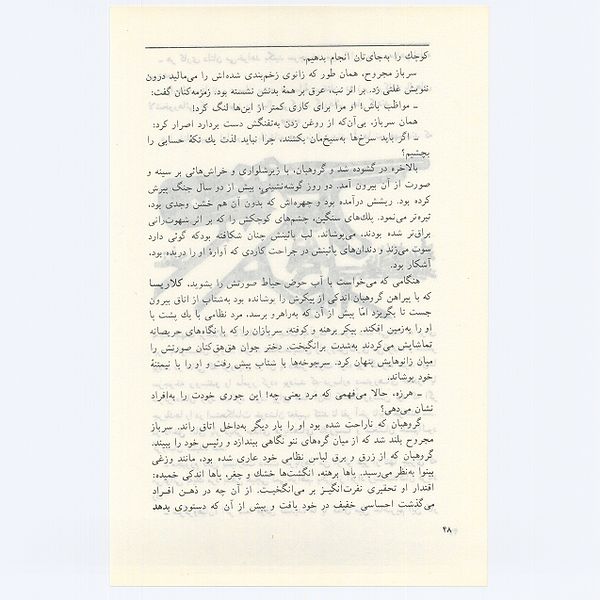 کوچك را به‌جای‌تان انجام بدهیم.
سرباز مجروح، همان طور که زانوی زخم‌بندی شده‌اش را می‌مالید درون
ننویش غلتی زد. بر اثر تب، عرق بر همهٔ بدنش نشسته بود. زمزمه‌کنان گفت:
ـ مواظب باش! او مرا برای کاری کمتر از این‌ها لنگ کرد!
همان سرباز، بی‌آن‌که از روغن زدن به‌تفنگش دست بردارد اصرار کرد:
ـ اگر باید سرخ‌ها به‌سیخ‌مان بکشند، چرا نباید لذت یك تکهٔ حسابی را
بچشیم؟
بالاخره در گشوده شد و گروهبان، با زیرشلواری و خراش‌هائی بر سینه و
صورت از آن بیرون آمد. دو روز گوشه‌نشینی، بیش از دو سال جنگ پیرش
کرده بود. ریشش درآمده بود و چهره‌اش که بدون آن هم خشن وجدی بود،
تیره‌تر می‌نمود. پلك‌های سنگین، چشم‌های کوچکش را که بر اثر شهوت‌رانی
براق‌تر شده بودند، می‌پوشاند. لب پائینش چنان شکافته بودکه گوئی دارد
سوت می‌زند و دندان‌های پائینش در جراحت گازدی که آوارهٔ او را دریده بود،
آشکار بود.
هنگامی که می‌خواست با آب حوض حیاط صورتش را بشوید، کلاریسا
که با پیراهن گروهبان اندکی از پیکرش را پوشانده بود به‌شتاب از اتاق بیرون
جست تا بگریزد امّا پیش از آن که به‌راهرو برسد، مرد نظامی با یك پشت پا
او را به‌زمین افکند. پیکر برهنه و کوفته، سربازان را که با نگاه‌های حریصانه
تماشایش می‌کردند به‌شدت برانگیخت. دختر جوان هق‌هق‌کنان صورتش را
میان زانوهایش پنهان کرد. سرجوخه‌ها با شتاب پیش رفت و او را با نیمتنهٔ
خود پوشاند.
ـ هرزه، حالا می‌فهمی که مرد یعنی چه! این جوری خودت را به‌افراد
نشان می‌دهی؟
گروهبان که ناراحت شده بود او را بار دیگر به‌داخل اتاق راند. سرباز
مجروح بلند شد که از میان گره‌های ننو نگاهی بیندازد و رئیس خود را ببیند.
گروهبان که از زرق و برق لباس نظامی خود عاری شده بود، مانند وزغی
بینوا به‌نظر می‌رسید. پاها برهنه، انگشت‌ها خشك و چغر، پاها اندکی خمیده:
اقتدار او تحقیری نفرت‌انگیز بر می‌انگیخت. از آن چه در ذهن افراد
می‌گذشت احساسی خفیف در خود یافت و پیش از آن که دستوری بدهد
۴۸